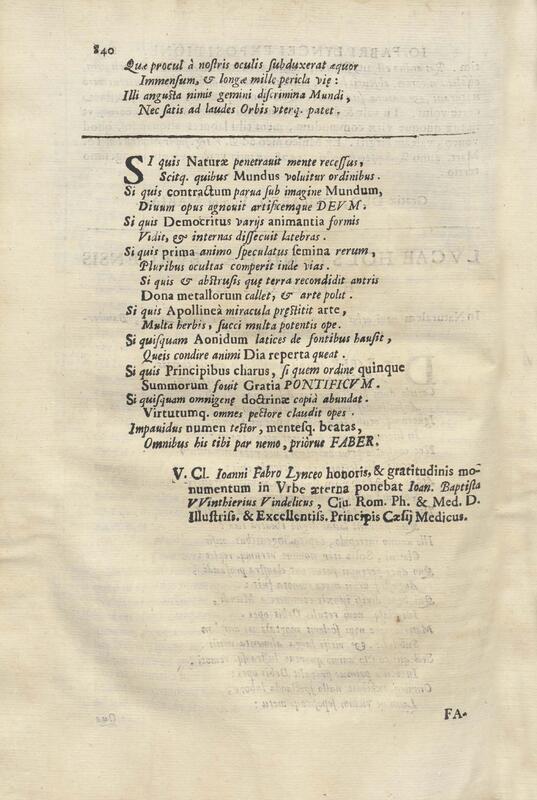 840
Quæ procul à nostris oculis subduxerat æquor
Immensum, & longæ mille pericla vię:
Illi angusta nimis gemini discrimina Mundi,
Nec satis ad laudes Orbis vterq. patet.
SI quis Naturæ penetrauit mente recessus,
Scitq. quibus Mundus voluitur ordinibus.
Si quis contractum parua sub imagine Mundum,
Diuum opus agnouit artificemque DEVM.
Si quis Democritus varijs animantia formis
Vidit, & internas dissecuit latebras.
Si quis prima animo speculatus semina rerum,
Pluribus ocultas comperit inde vias.
Si quis & abstrusis quę terra recondidit antris
Dona metallorum callet, & arte polit.
Si quis Apollineâ miracula pręstitit arte,
Multa herbis, succi multa potentis ope.
Si quisquam Aonidum latices de fontibus hausit,
Queis condire animi Dia reperta queat.
Si quis Principibus charus, si quem ordine quinque
Summorum fouit Gratia PONTIFICVM.
Si quisquam omnigenę doctrinæ copiâ abundat.
Virtutumq. omnes pectore claudit opes.
Impauidus numen testor, mentesq. beatas,
Omnibus his tibi par nemo, priórue FABER.
V. Cl. Ioanni Fabro Lynceo honoris, & gratitudinis mo-
numentum in Vrbe æterna ponebat Ioan. Baptista
VVinthierius Vindelicus, Ciu. Rom. Ph. & Med. D.
Illustriss. & Excellentiss. Principis Cæsij Medicus.
FA-